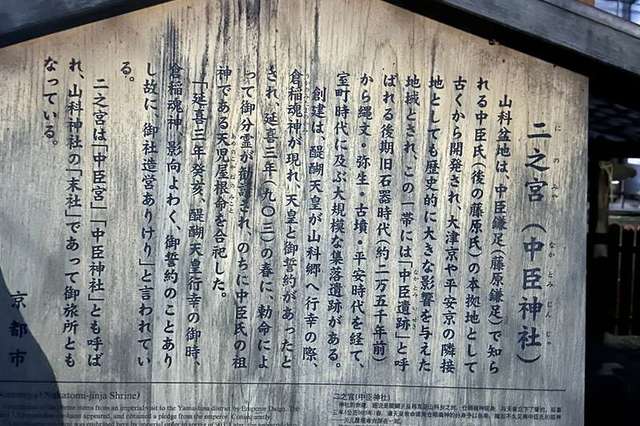 二之宮（中臣神社）
山科盆地は、中臣鎌足（藤原鎌足）で知ら
れる中臣氏（後の藤原氏）の本拠地として
古くから開発され、大津京や平安京の隣接
地としても歴史的に大きな影響を与えた
地域とされ、この一帯には「中臣遺跡」と呼
ばれる後期旧石器時代（約二万五千年前）
から縄文・弥生・古墳・平安時代を経て、
室町時代に及ぶ大規模な集落遺跡がある。
創建は、醍醐天皇が山科郷へ行幸の際、
倉稲魂神が現れ、天皇と御誓約があったと
され、延喜三年（九〇三）の春に、勅命によ
って御分霊が勧請され、のちに中臣氏の祖
神である天児屋根命を合祀した。
「延喜三年癸亥、醍醐天皇行幸の御時、
倉稲魂神、影向ましまし、御誓約のことあり
し故に、御社造営ありけり」と言われてい
る。
二之宮は「中臣宮」「中臣神社」とも呼ば
れ、山科神社の「末社」であって御旅所とも
なっている。
京都市
Nakatomi-jinja Shrine)
二之宮(中臣神社)